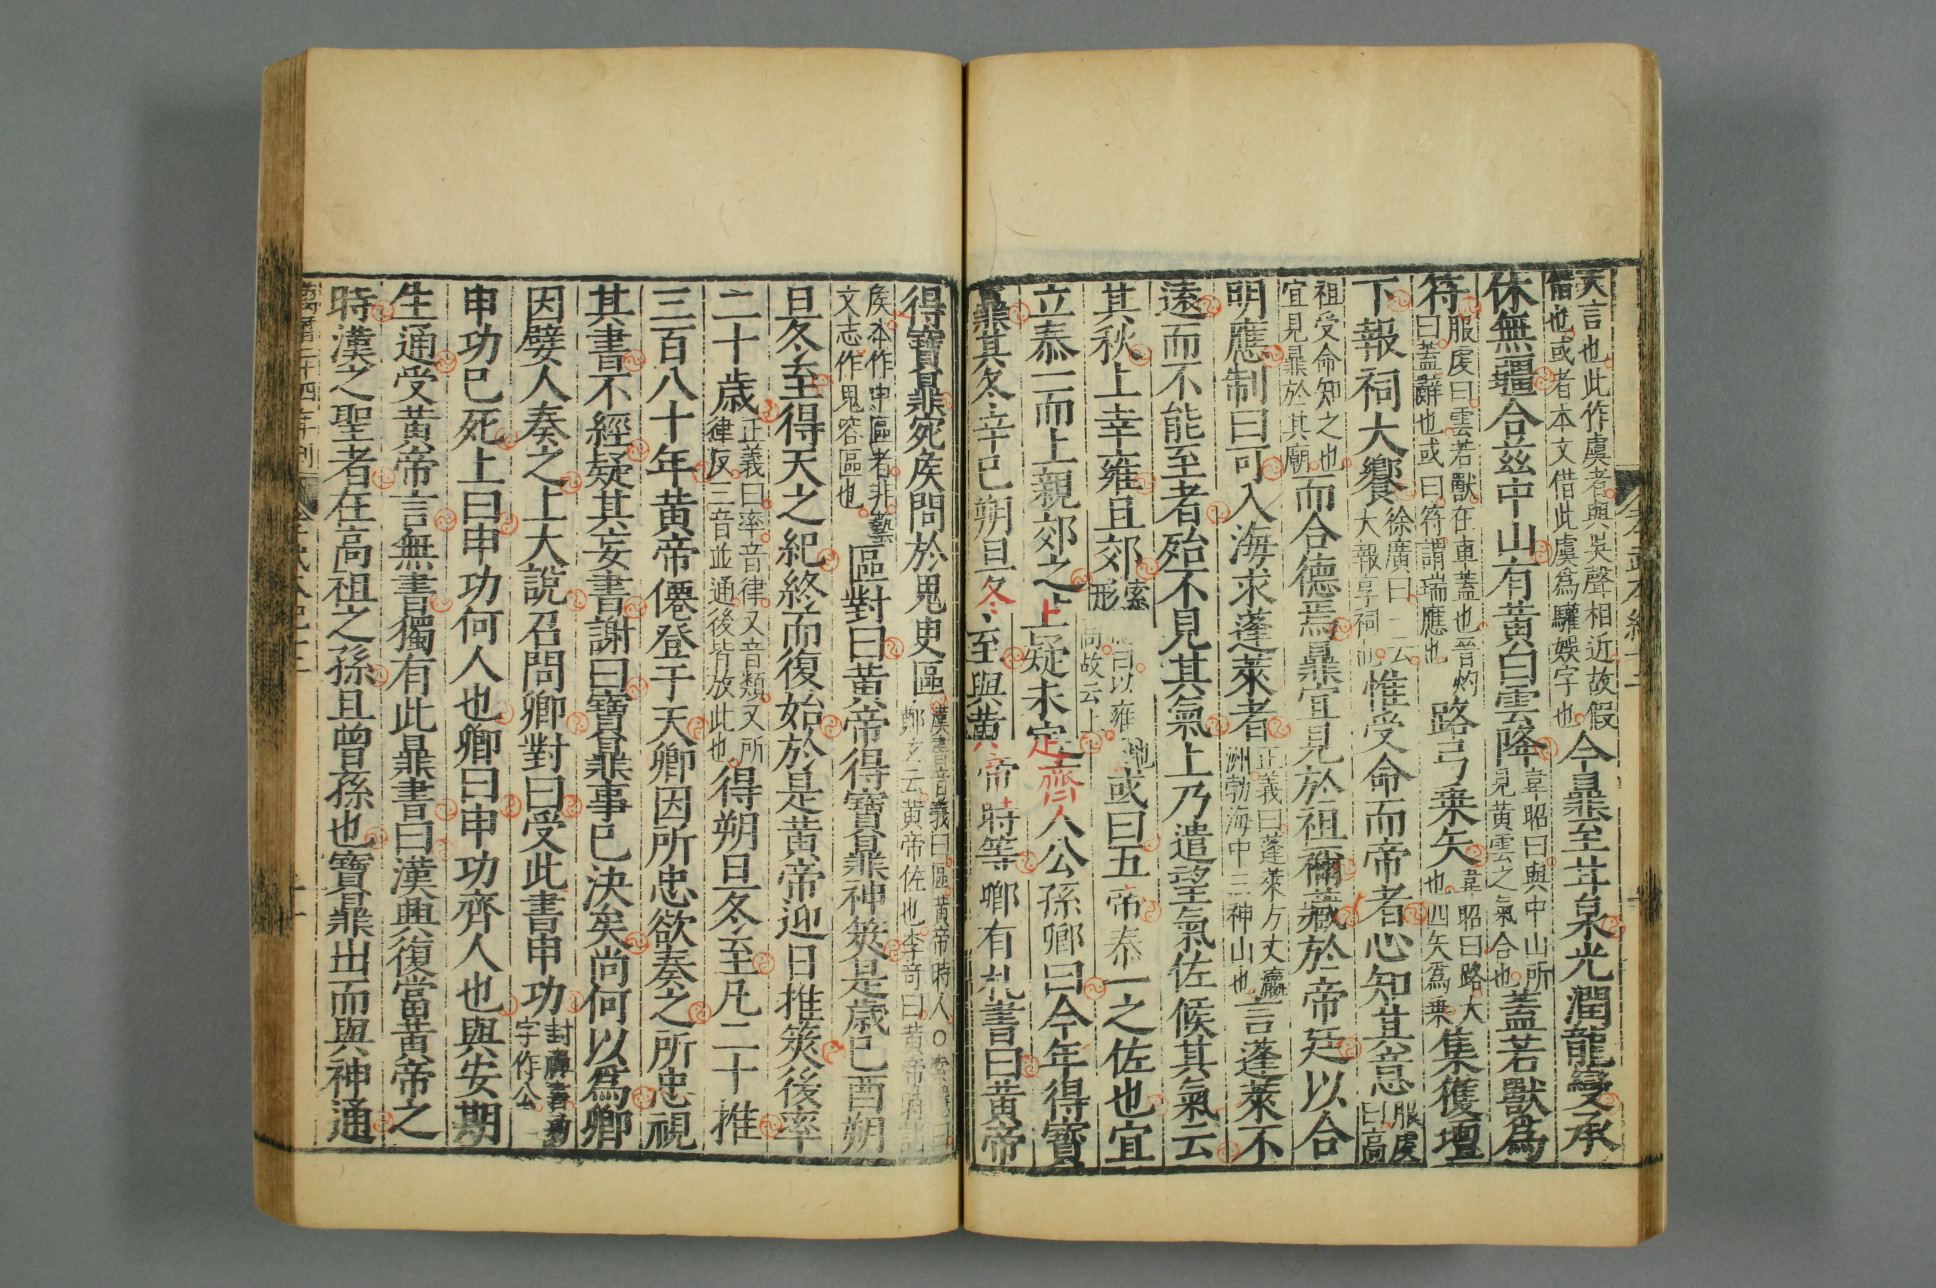 大言也此作虞者與吳聲相近故假
借也或者本文借此虞爲驩娛字也
今鼎至甘泉光潤龍變承
休無疆合兹中山有黃白雲降
韋昭曰與中山所
見黃雲之氣合也
蓋若獸爲
符
服虔曰雲若獸在車蓋也晉灼
曰蓋辭也或曰符謂瑞應也
路弓乗矢
韋昭曰路大
也四矢爲乗
集獲壇
下報祠大饗
徐廣曰一云
大報享祠也
惟受命而帝者心知其意
服虔
曰高
祖受命知之也
宜見鼎於其廟
而合德焉鼎宜見於祖禰藏於帝廷以合
明應制曰可入海求蓬萊者
正義曰蓬萊方丈瀛
洲勃海中三神山也
言蓬萊不
遠而不能至者殆不見其氣上乃遣望氣佐候其氣云
其秋上幸雍且郊
或曰五帝泰一之佐也宜
立泰一而上親郊之上疑未定齊人公孫卿曰今年得寶
鼎其冬辛巳朔旦冬至與黃帝時等卿有札書曰黃帝
得寶鼎宛侯問於鬼臾區
漢書音義曰區黃帝時人○索隱曰
鄭玄云黃帝佐也李竒曰黃帝時諸
侯本作申區者非藝
文志作鬼容區也
區對曰黃帝得寶鼎神筴是歲己酉朔
旦冬至得天之紀終而復始於是黃帝迎日推筴後率
二十歲
正義曰率音律又音類又所
律反三音並通後皆放此也
得朔旦冬至凡二十推
三百八十年黃帝僊登于天卿因所忠欲奏之所忠視
其書不經疑其妄書謝曰寶鼎事已決矣尚何以爲卿
因嬖人奏之上大說召問卿對曰受此書申功
封禪書功
字作公
申功已死上曰申功何人也卿曰申功齊人也與安期
生通受黃帝言無書獨有此鼎書曰漢興復當黃帝之
時漢之聖者在高祖之孫且曾孫也寶鼎出而與神通